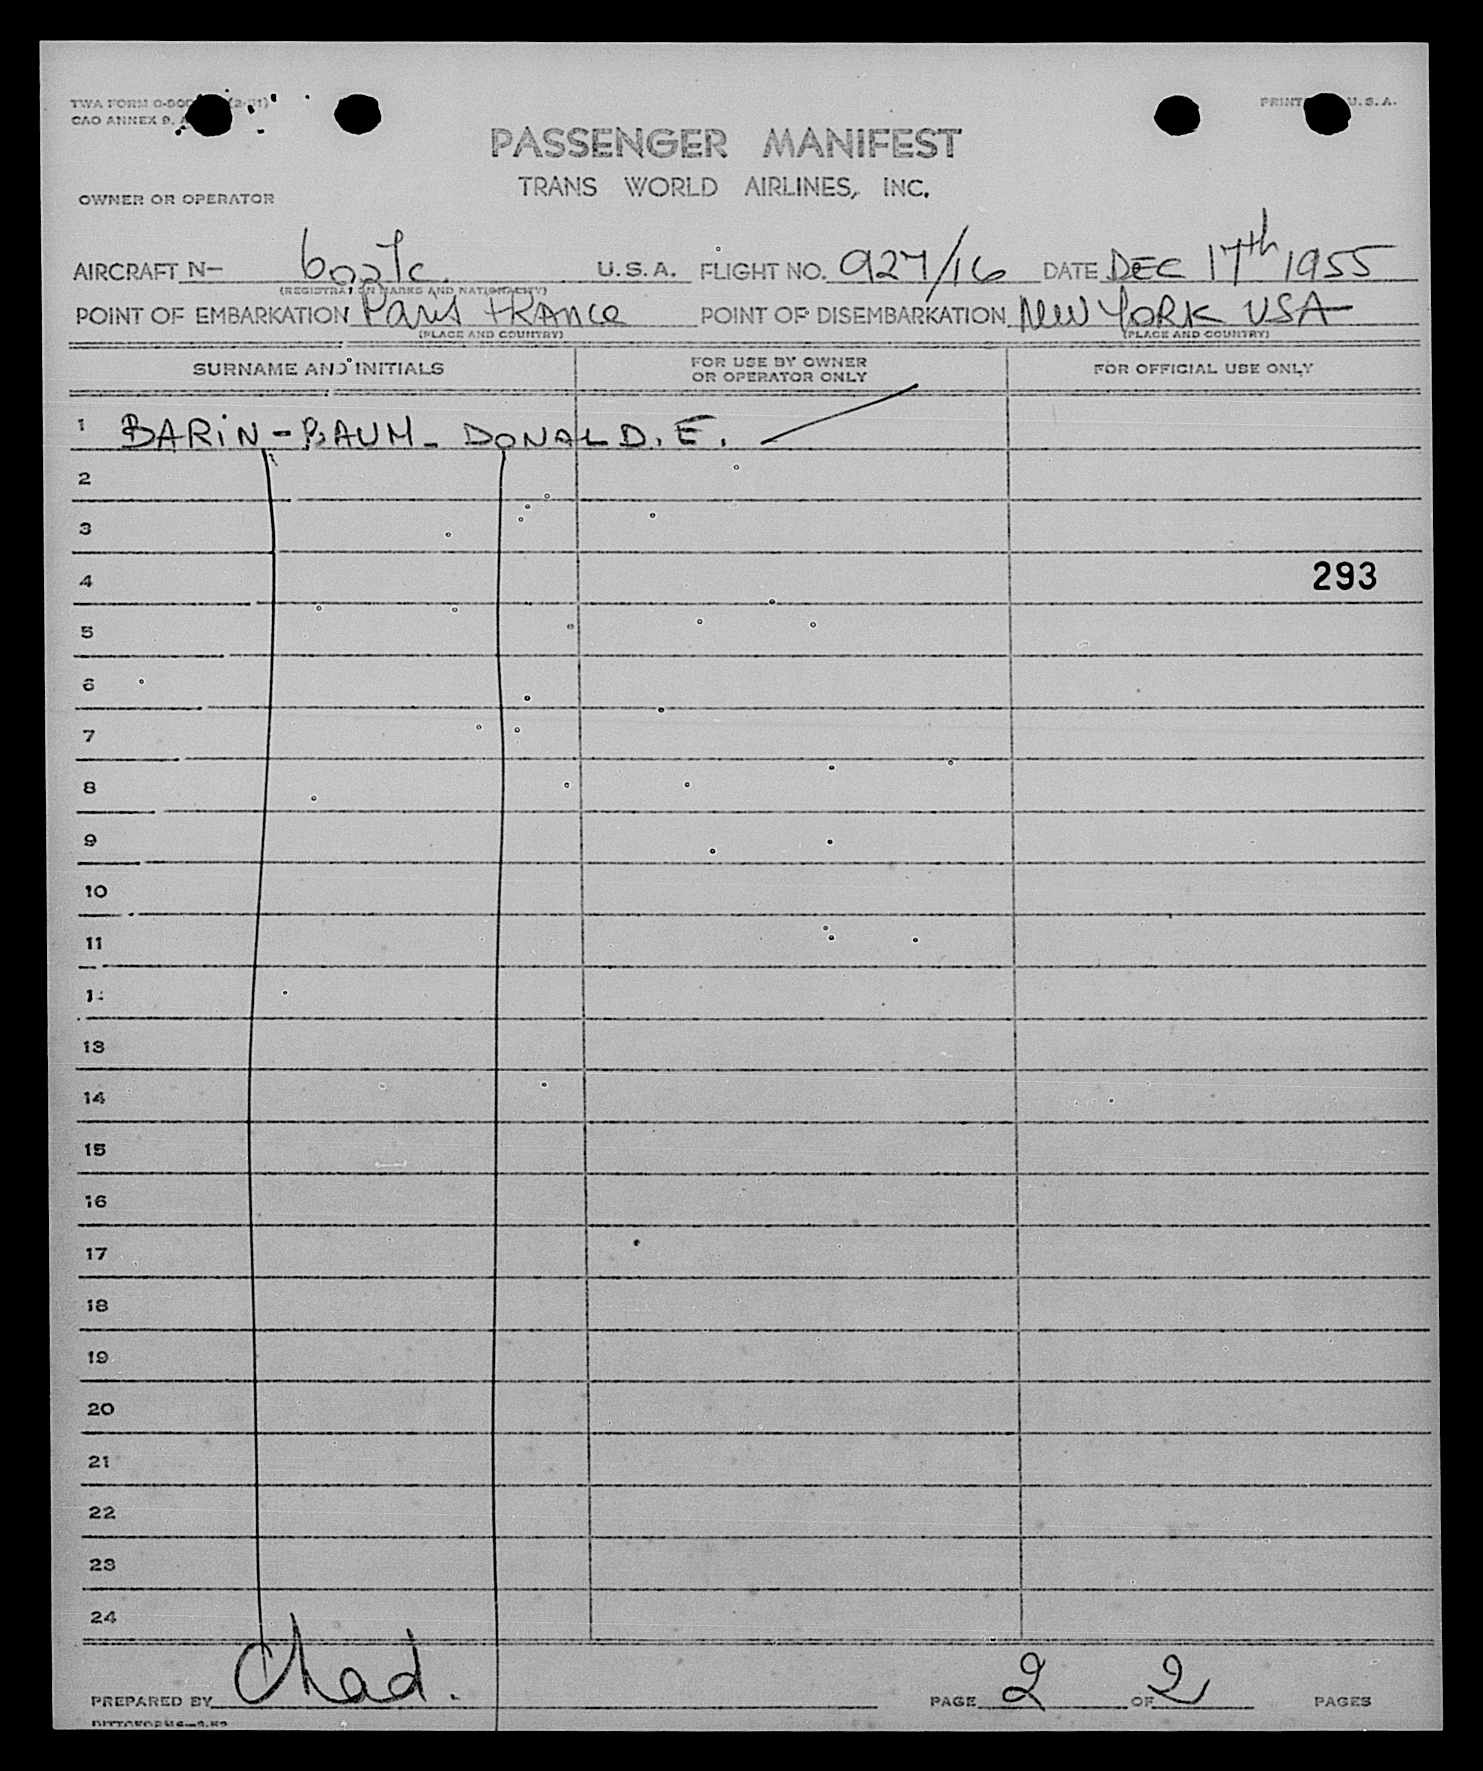 TWA FORM O-900 (2-51)
CAO ANNEX 9, A
PRINT U. S. A.
PASSENGER MANIFEST
TRANS WORLD AIRLINES, INC.
OWNER OR OPERATOR
AIRCRAFT N- 6027C. U. S. A. FLIGHT NO. 927/16 DATE DEC 17th 1955
(REGISTRATION MARKS AND NATIONALITY)
POINT OF EMBARKATION Paris FRANce POINT OF DISEMBARKATION NEW YORK USA
(PLACE AND COUNTRY) (PLACE AND COUNTRY)
SURNAME AND INITIALS FOR USE BY OWNER OR OPERATOR ONLY FOR OFFICIAL USE ONLY
1 BARIN-BAUM- DONALD. E.
2
3
4 293
5
6
7
8
9
10
11
1
13
14
15
16
17
18
19
20
21
22
23
24
PREPARED BY Chad. PAGE 2 OF 2 PAGES